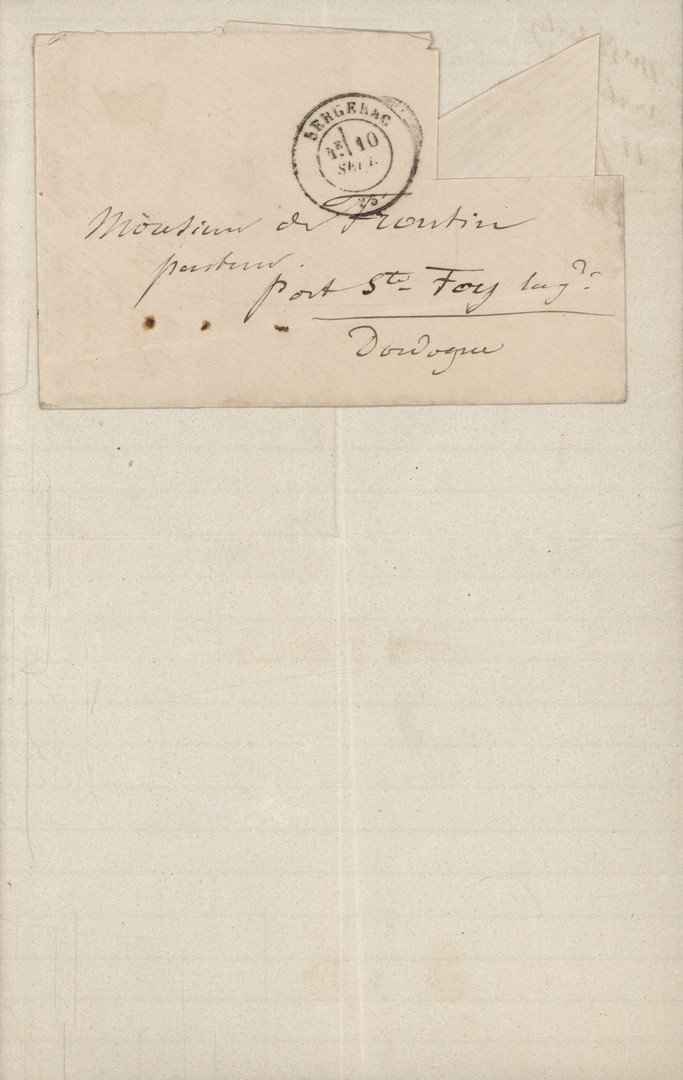 BERGERAC
1E 10
SEPT.
75
Monsieur de Frontin
pasteur.
port Ste Foy
Dordogne